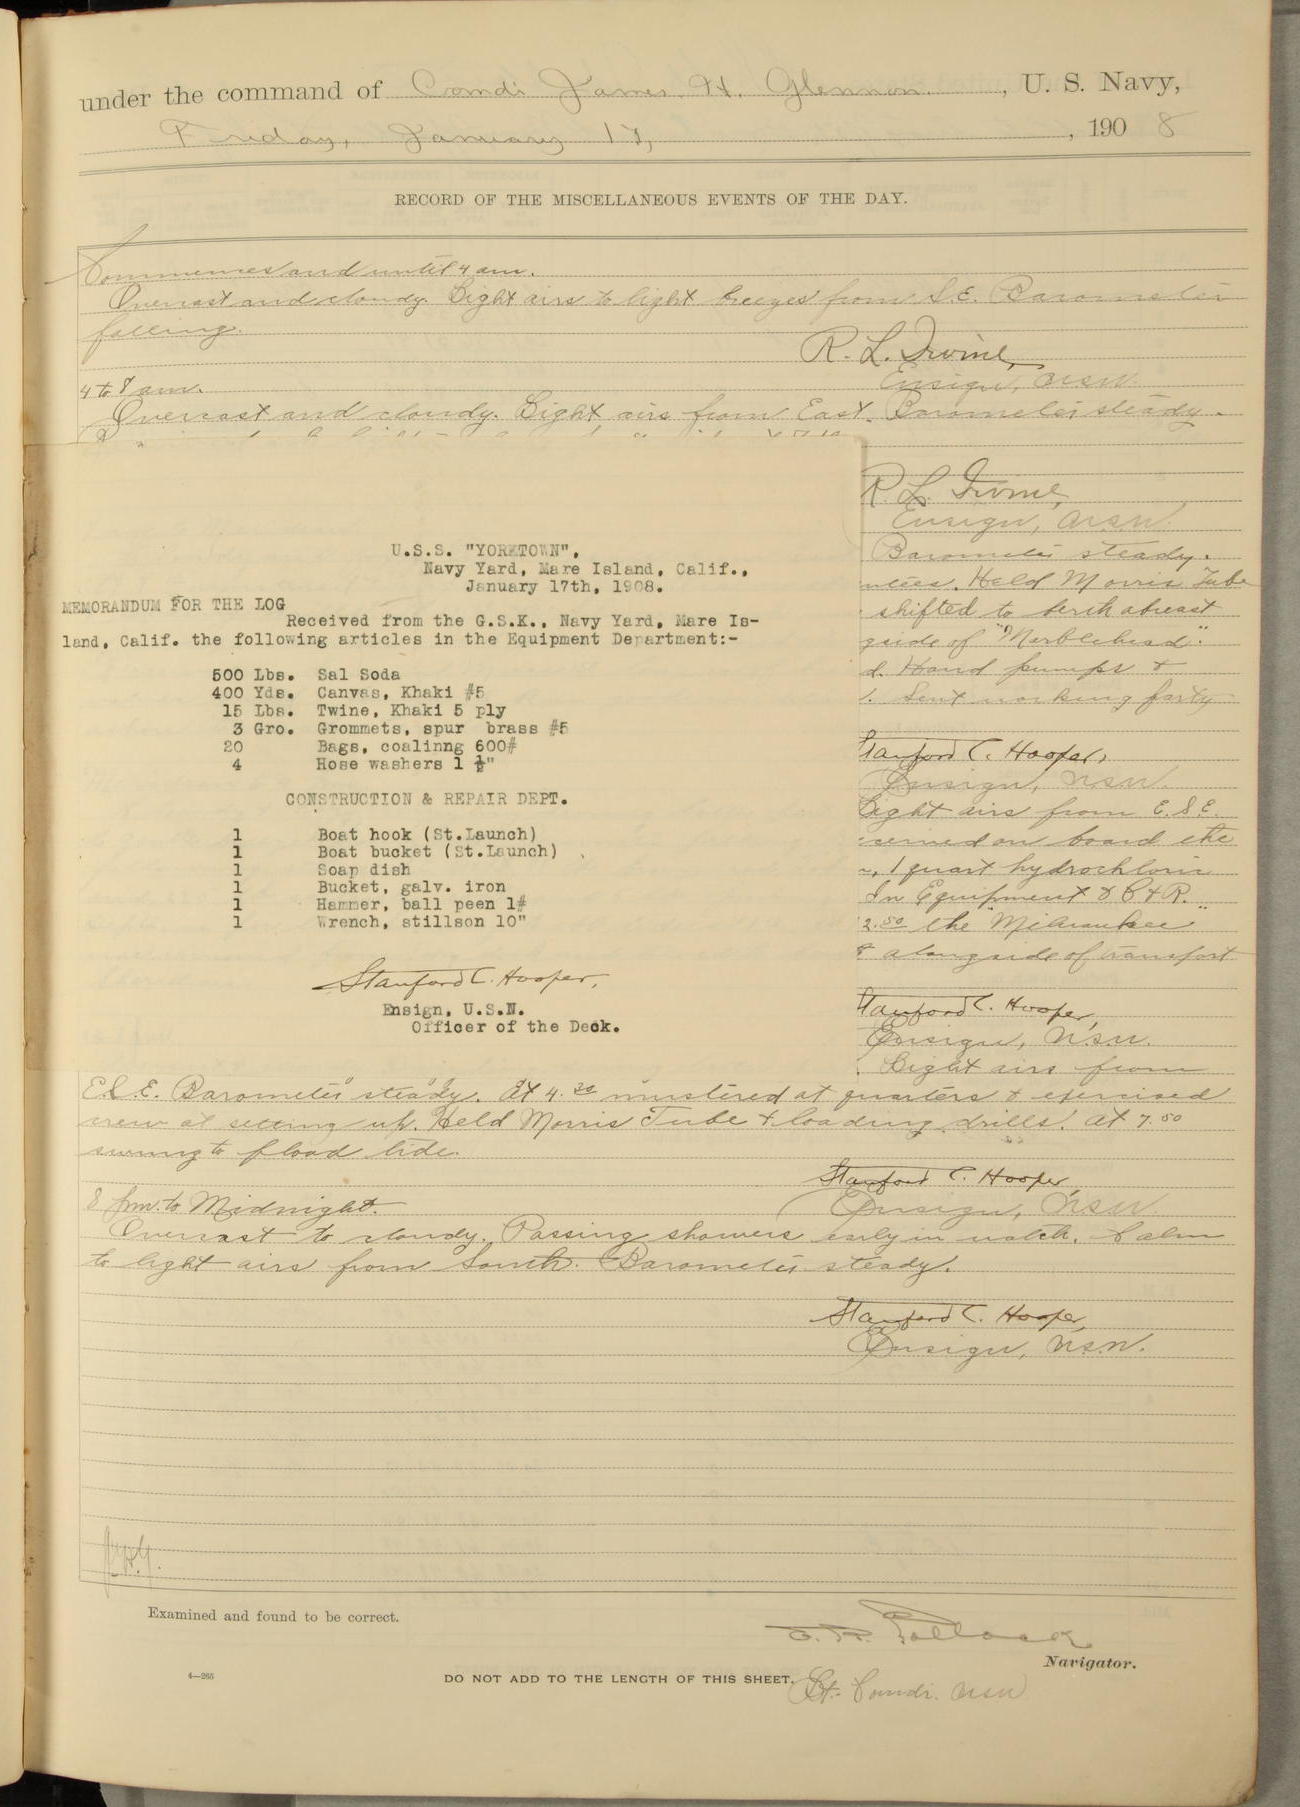 under the command of Comdr James H. Glennon, U. S. Navy,
Friday, January 17, , 190 8
RECORD OF THE MISCELLANEOUS EVENTS OF THE DAY.
Commences and until 4 am.
Overcast and cloudy. Light airs to light breezes from S.E. Barometer
falling.
R. L. Irvine,
Ensign, USN.
4 to 8 am.
Overcast and cloudy. Light airs from East. Barometer steady.
R. L. Irvine,
Ensign, U.S.N.
Barometer steady.
Held Morris Tube
shifted to berth abreast
gside of "Marblehead".
d. Hand pumps &
. Sent working party
Stanford C. Hooper,
Ensign, USN.
Light airs from E.S.E.
ceived on board the
, 1 quart hydrochloric
In Equipment & C & R.
2.50 the "Milwaukee"
alongside of transport
Stanford C. Hooper,
Ensign, U.S.N.
Light airs from
U.S.S. "YORKTOWN",
Navy Yard, Mare Island, Calif.,
January 17th, 1908.
MEMORANDUM FOR THE LOG
Received from the G.S.K., Navy Yard, Mare Is-
land, Calif. the following articles in the Equipment Department:-
500 Lbs. Sal Soda
400 Yds. Canvas, Khaki #5
15 Lbs. Twine, Khaki 5 ply
3 Gro. Grommets, spur brass #5
20 Bags, coalinng 600#
4 Hose washers 1 ½"
CONSTRUCTION & REPAIR DEPT.
1 Boat hook (St.Launch)
1 Boat bucket (St.Launch)
1 Soap dish
1 Bucket, galv. iron
1 Hammer, ball peen 1#
1 Wrench, stillson 10"
Stanford C. Hooper,
Ensign, U.S.N.
Officer of the Deck.
E.S.E. Barometer steady. At 4.30 mustered at quarters & exercised
crew at setting up. Held Morris Tube & loading drills. At 7.50
swung to flood tide.
Stanford C. Hooper
Ensign, USN.
8 pm. to Midnight.
Overcast to cloudy. Passing showers early in watch. Calm
to light airs from South. Barometer steady.
Stanford C. Hooper,
Ensign, U.S.N.
Examined and found to be correct.
E. R. Pollock
Navigator.
4—265
DO NOT ADD TO THE LENGTH OF THIS SHEET.
Lt. Comdr. USN